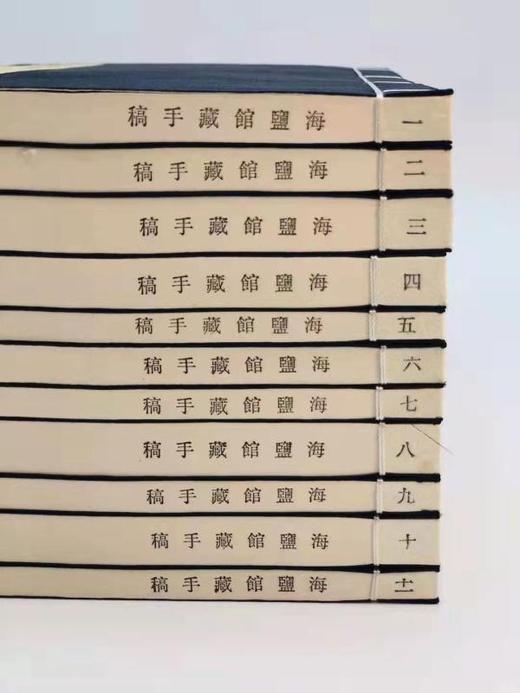 一 海鹽館藏手稿
二 海鹽館藏手稿
三 海鹽館藏手稿
四 海鹽館藏手稿
五 海鹽館藏手稿
六 海鹽館藏手稿
七 海鹽館藏手稿
八 海鹽館藏手稿
九 海鹽館藏手稿
十 海鹽館藏手稿
十一 海鹽館藏手稿